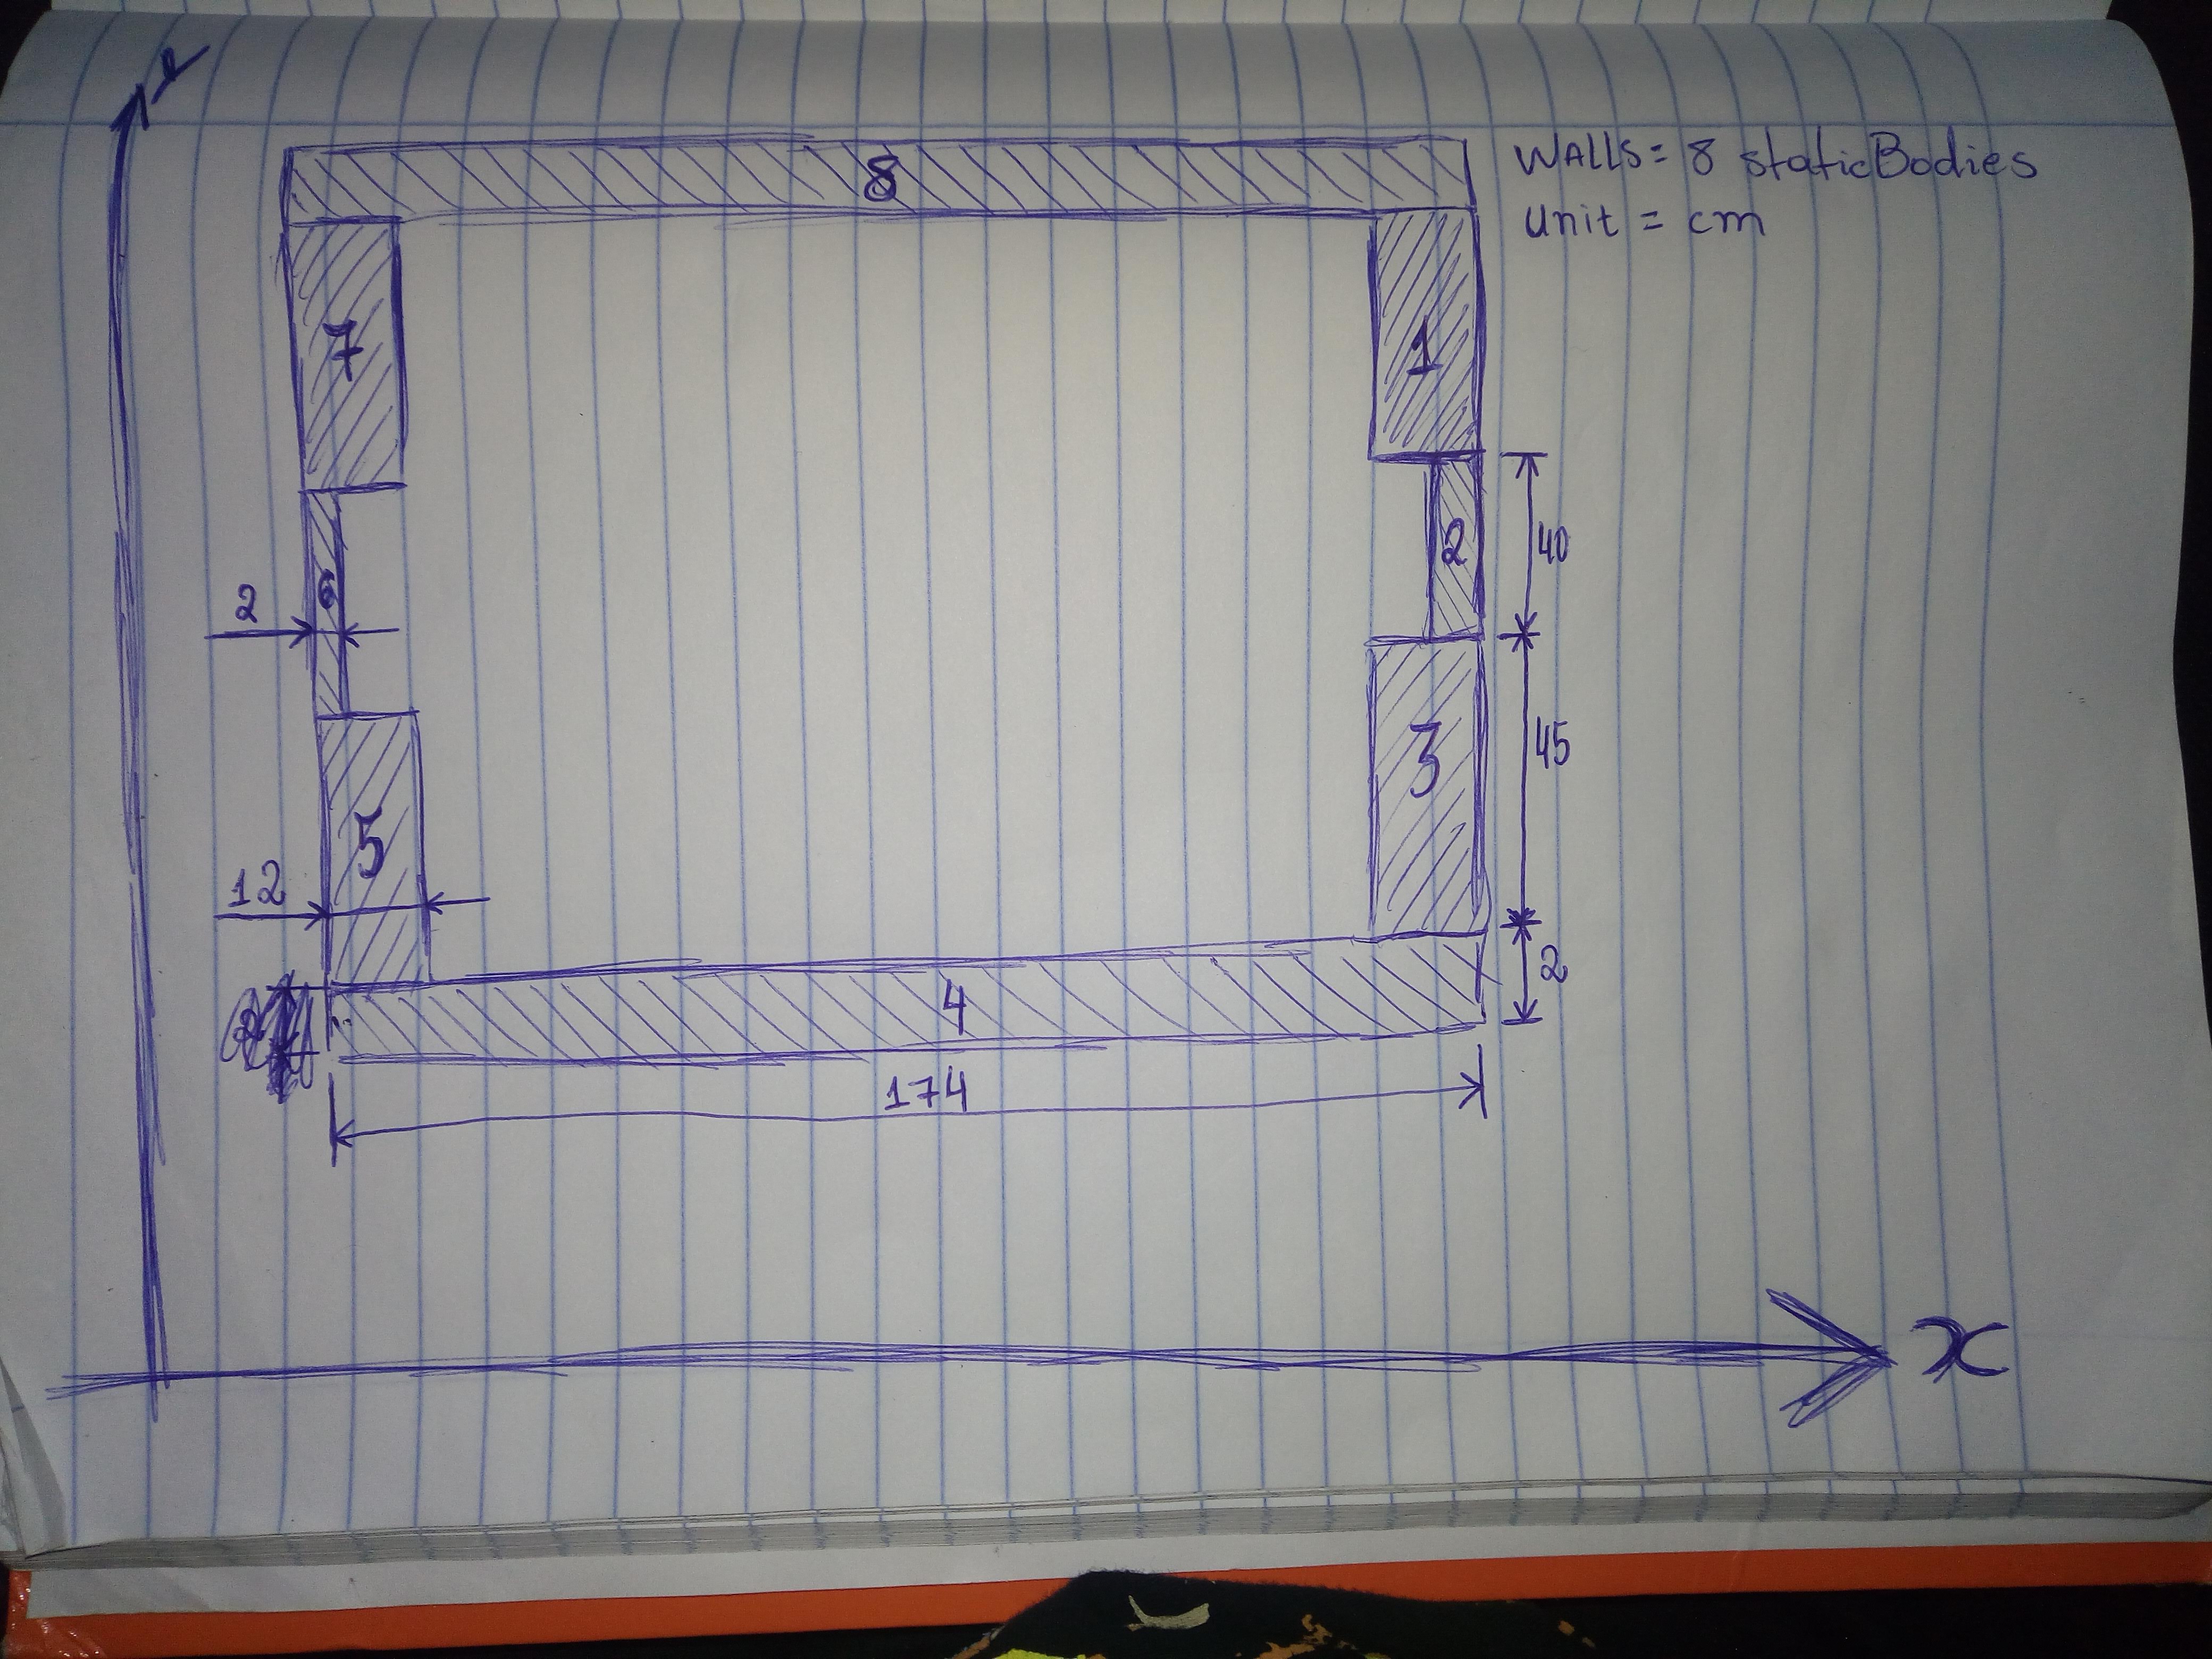 y
WALLS = 8 staticBodies
unit = cm
8
7
1
2
40
6
2
3
45
5
12
4
2
174
x